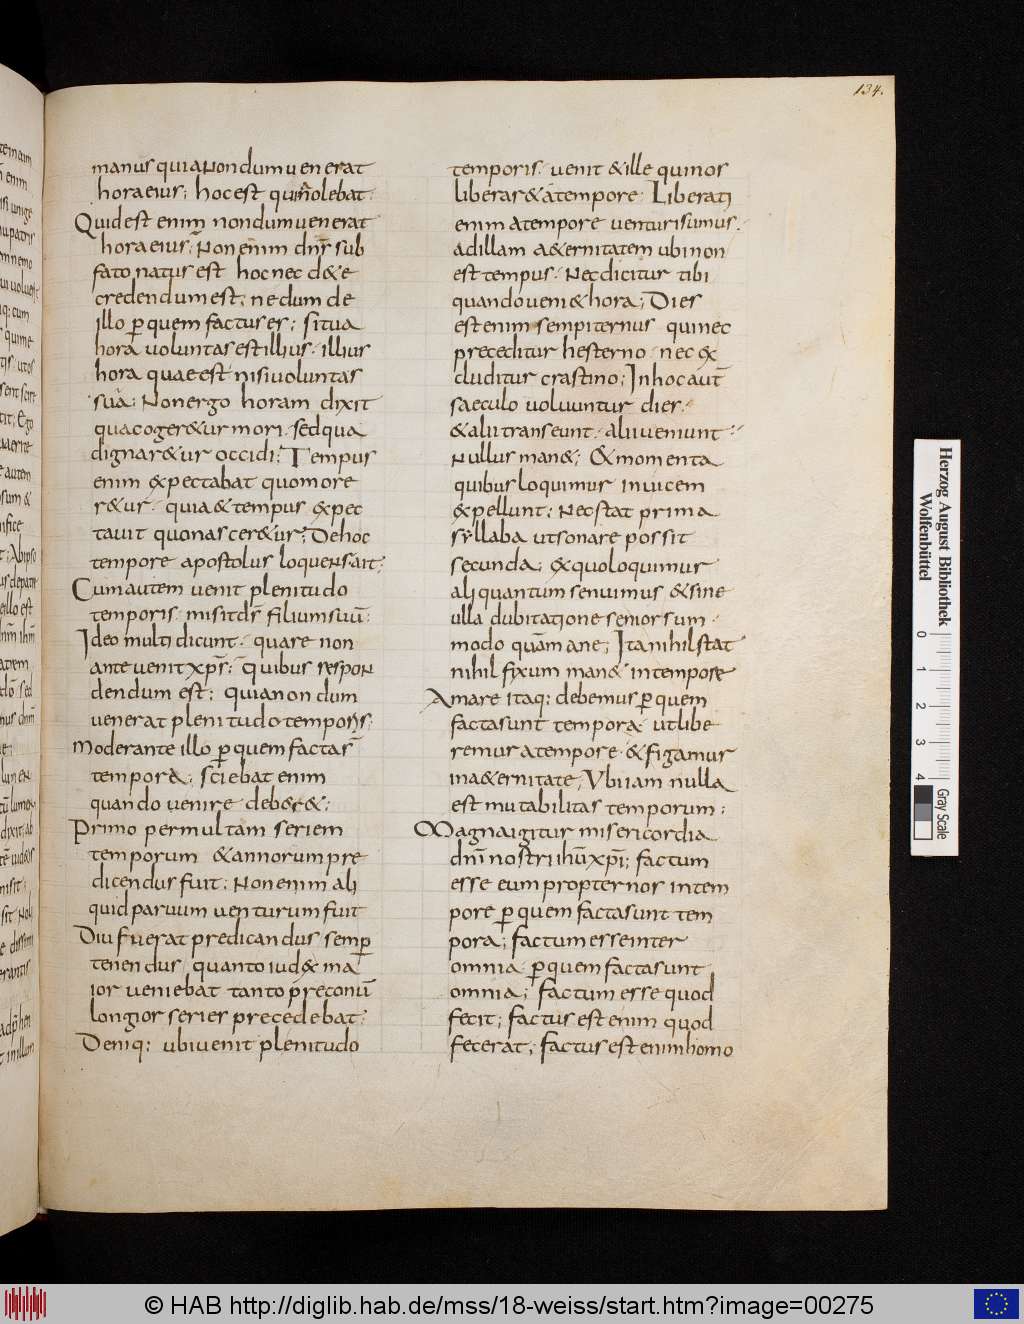 134.
manus quia nondum uenerat
hora eius; hoc est qui n̄ olebat.
Quid est enim nondum uenerat
hora eius; Non enim dn̄r sub
fato natus est hoc nec d& e
credendum est; nedum de
illo p̱ quem factus es; si tua
hora uoluntas est illius · illius
hora quae est nisi uoluntas
sua; Non ergo horam dixit
qua coger&ur mori · sed qua
dignar&ur occidi; Tempus
enim expectabat quo more
r&ur · quia & tempus expec
tauit quo nascer&ur; De hoc
tempore apostolus loquens ait;
Cum autem uenit plenitudo
temporis · misit d̄s filium suū;
Ideo multi dicunt · quare non
ante uenit xp̄s; quibus respon
dendum est; quia nondum
uenerat plenitudo temporis;
Moderante illo p̱ quem facta s̄
tempora; sciebat enim
quando uenire deber&;
Primo per multam seriem
temporum & annorum pre
dicendus fuit; Non enim ali
quid paruum uenturum fuit
Diu fuerat predicandus semp̱
tenendus; quanto iudex ma
ior ueniebat tanto preconū
longior series precedebat;
Deniq; ubi uenit plenitudo
temporis · uenit & ille qui nos
liberas & a tempore · Liberati
enim a tempore uenturi sumus ·
ad illam a&ernitatem ubi non
est tempus · Nec dicitur tibi
quando ueni& hora; Dies
est enim sempiternus qui nec
preceditur hesterno · nec ex
cluditur crastino; In hoc aut̄
saeculo uoluuntur dies
& alii transeunt · alii ueniunt ·
Nullus man&; & momenta
quibus loquimur inuicem
expellunt; Nec stat prima
syllaba ut sonare possit
secunda; ex quo loquimur
aliquantum senuimus & sine
ulla dubitatione senior sum
modo quam ane; Ita nihil stat
nihil fixum man& in tempore
Amare itaq; debemus p̱ quem
facta sunt tempora · ut libe
remur a tempore & figamur
in a&ernitate; Ubi iam nulla
est mutabilitas temporum;
Magna igitur misericordia
dn̄i nostri ih̄u xp̄i; factum
esse eum propter nos in tem
pore p̱ quem facta sunt tem
pora; factum esse inter
omnia p̱ quem facta sunt
omnia; factum esse quod
fecit; factus est enim quod
fecerat; factus est enim homo
Herzog August Bibliothek
Wolfenbüttel
0 1 2 3 4
Gray Scale
© HAB http://diglib.hab.de/mss/18-weiss/start.htm?image=00275